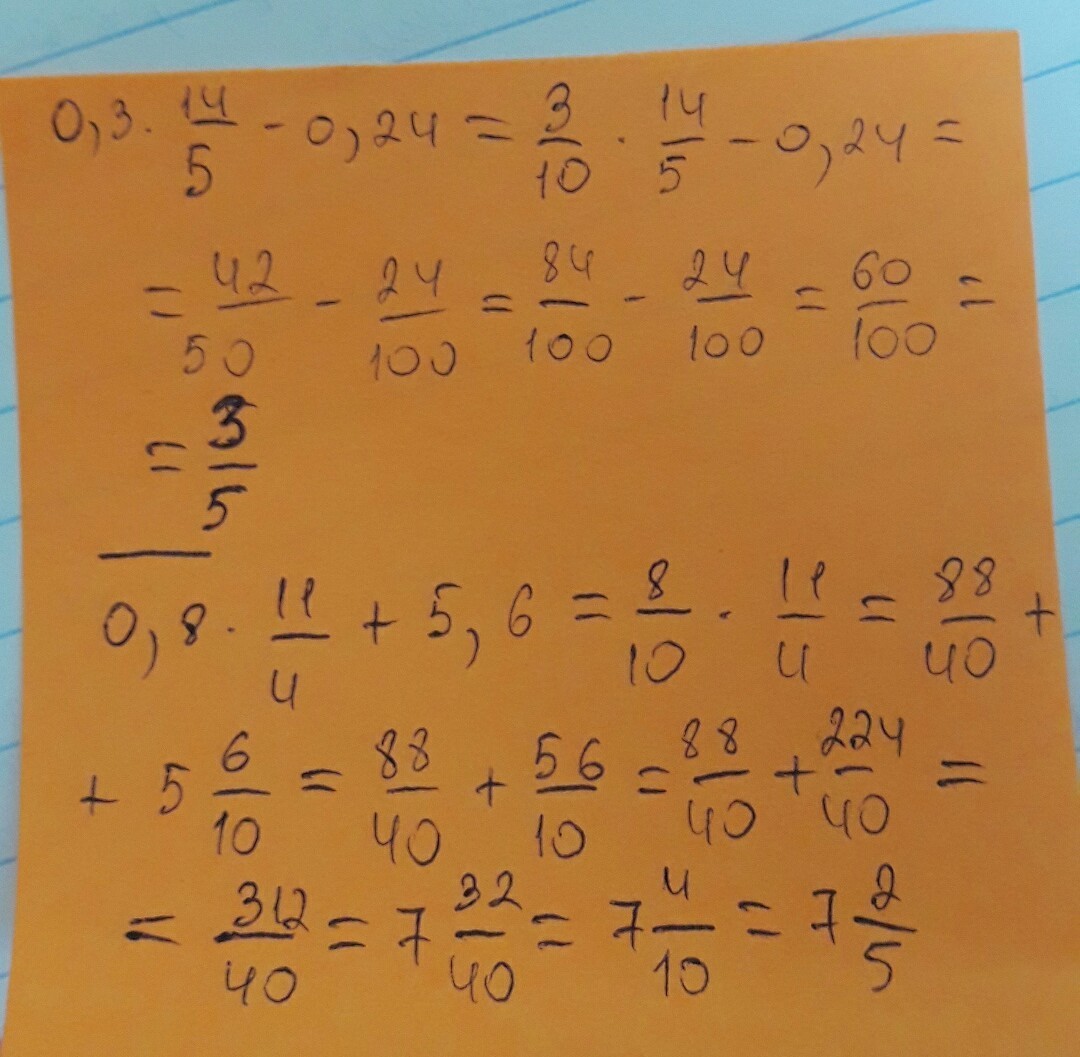 0,3 · 14/5 - 0,24 = 3/10 · 14/5 - 0,24 =
= 42/50 - 24/100 = 84/100 - 24/100 = 60/100 =
= 3/5
0,8 · 11/4 + 5,6 = 8/10 · 11/4 = 88/40 +
+ 5 6/10 = 88/40 + 56/10 = 88/40 + 224/40 =
= 312/40 = 7 32/40 = 7 4/10 = 7 2/5